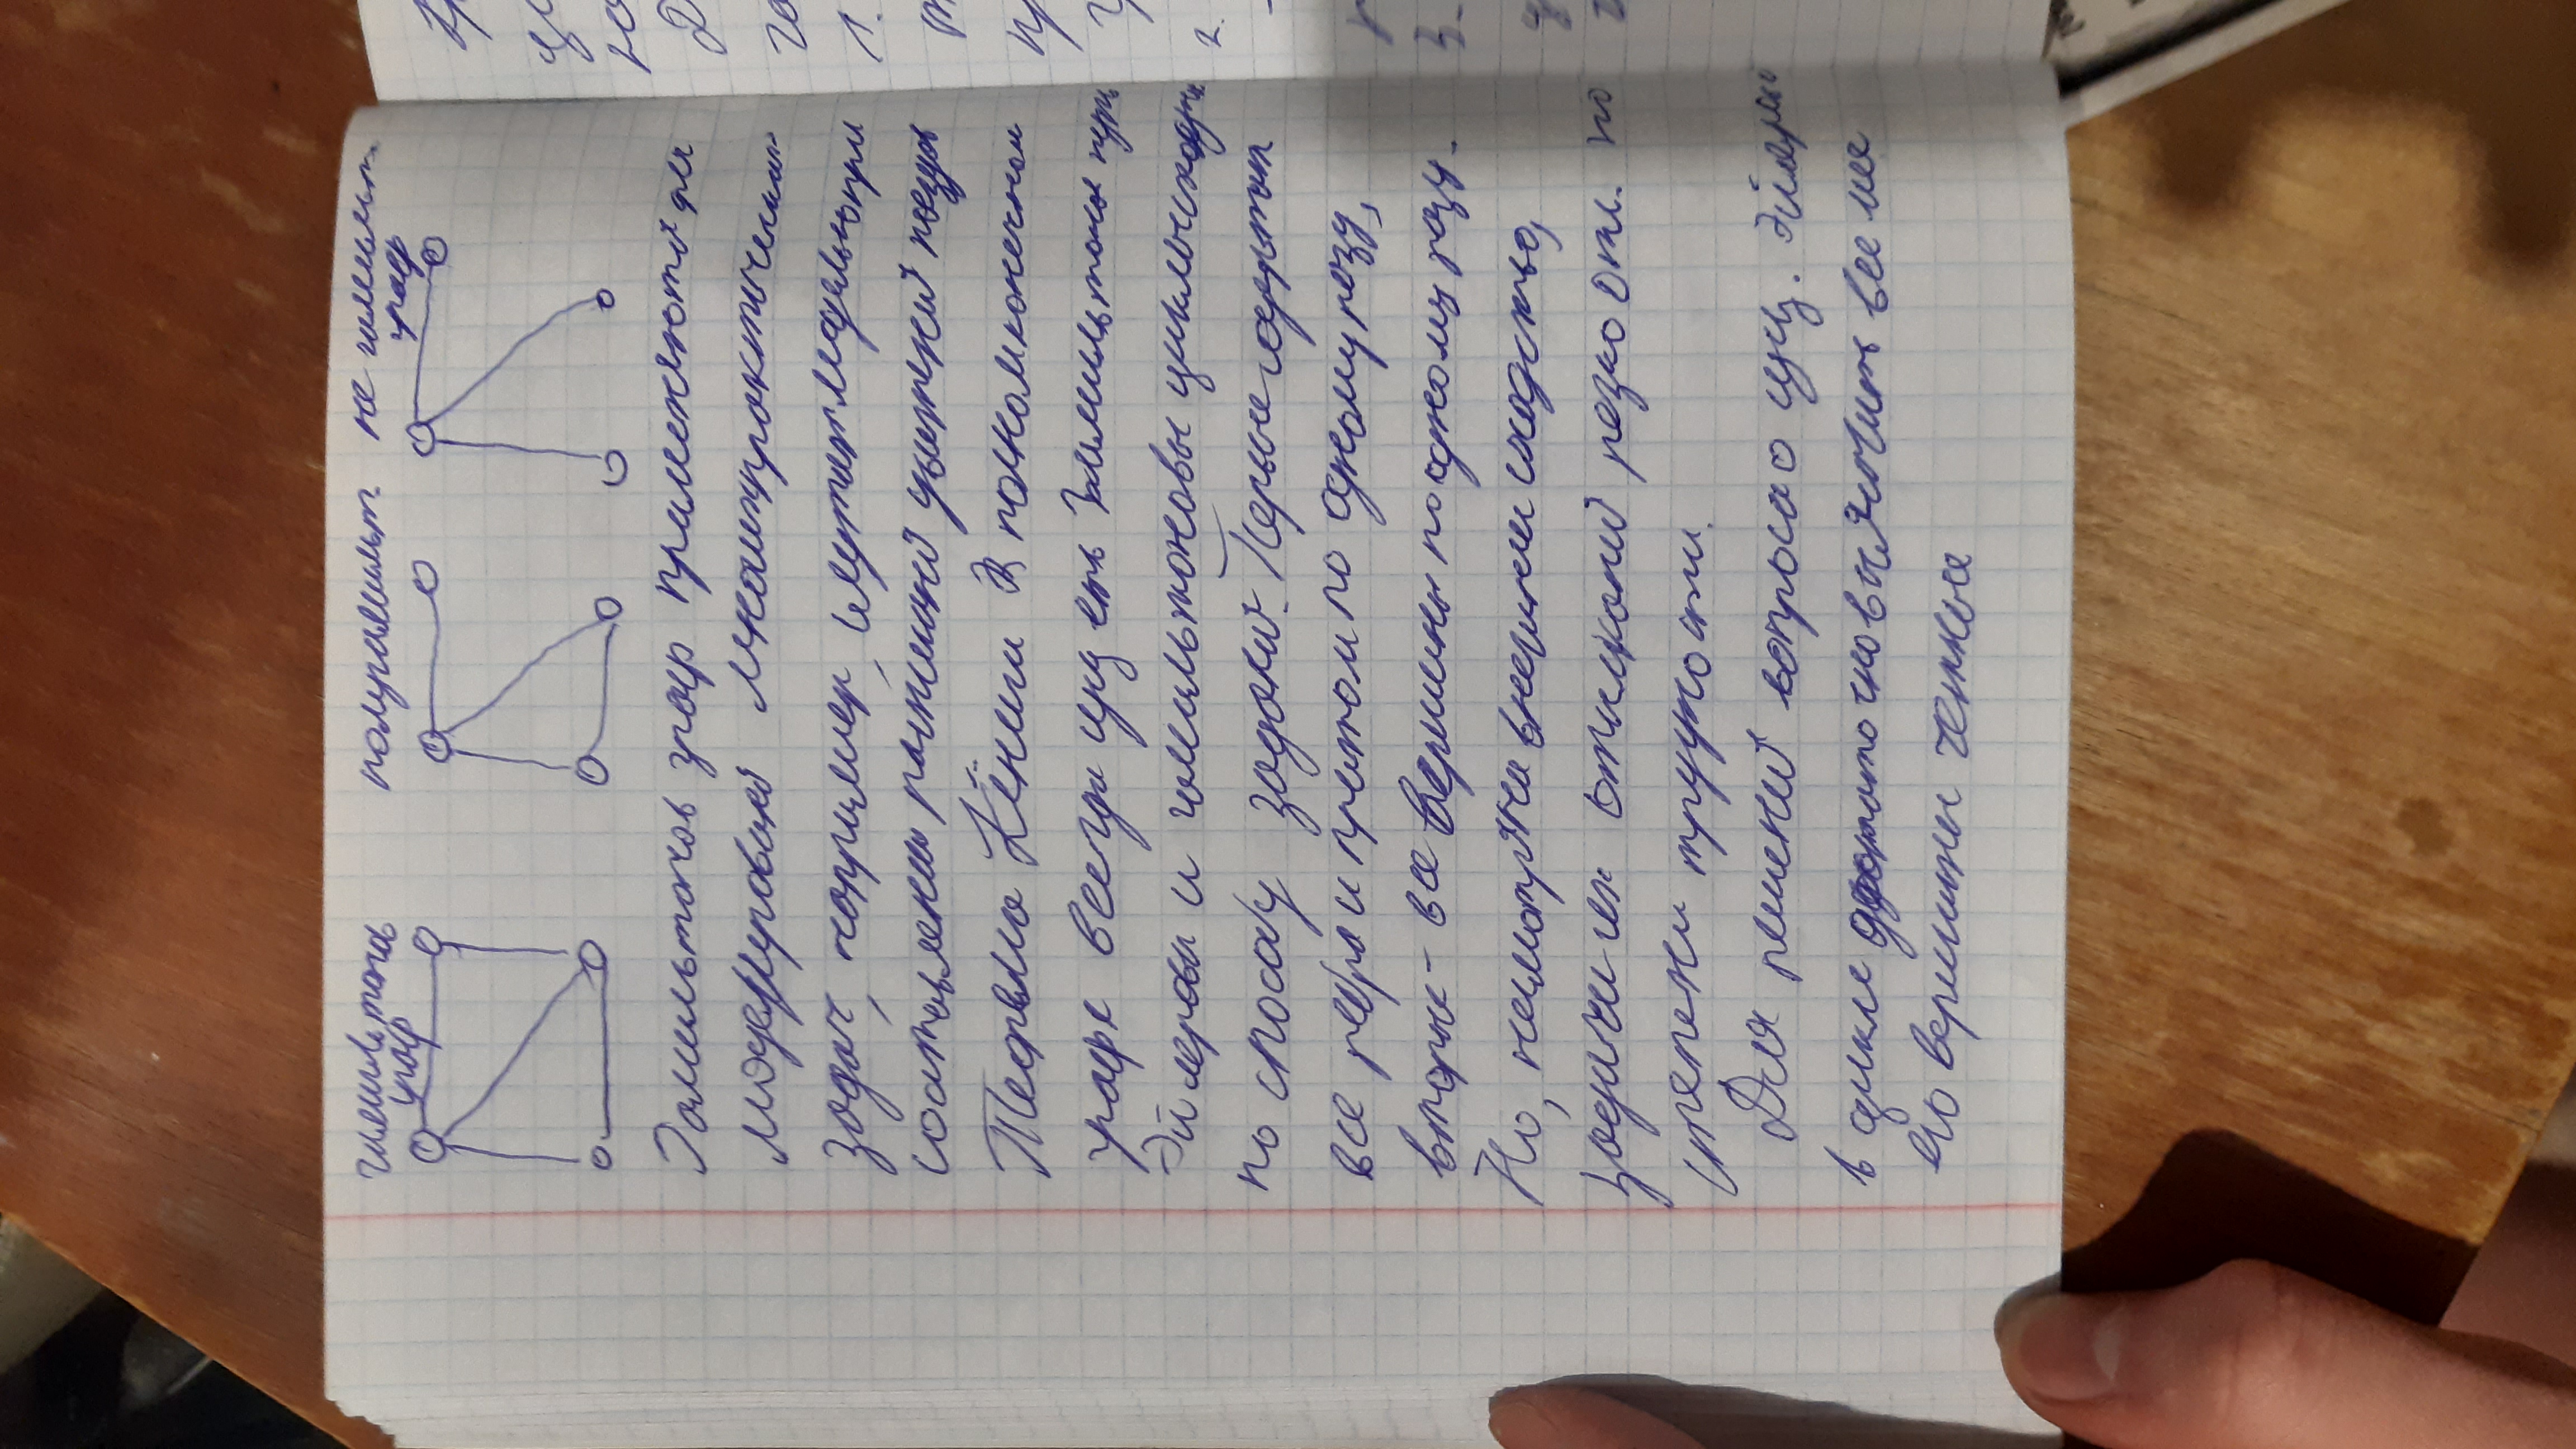 гамильтонов полугамильт. не гамильт.
граф граф
Гамильтонов граф применяются для
моделировани многих практических
задач, например, служат моделью при
составлении расписани движений поездов
Теорема Кёнига В полном конечном
графе всегда сущ есть Гамильтонов путь
Эйлеровы и гамильтоновы циклы сходны
по способу задани. Первые содержат
все ребра и притом по одному разу,
вторые - все вершины по одному разу.
Но, несмотря на внешнее сходство,
задачи их отысканий резко отл. по
степени трудности.
Для решений вопроса о сущ. Эйлеров
в цикле достаточно выяснить все ли
его вершины четные
1.
2.
3.